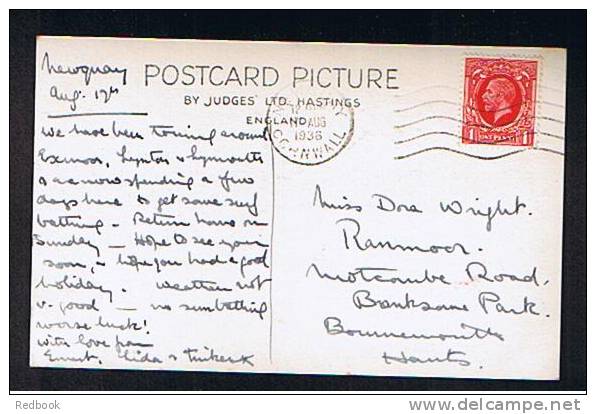 Newquay
Aug. 17th
POSTCARD PICTURE
BY JUDGES' LTD HASTINGS
ENGLAND
AUG
1936
CORNWALL
1 ONE PENNY 1
We have been touring around
Exmoor, Lynton & Lynmouth
& are now spending a few
days here to get some surf
bathing. Return home on
Sunday — Hope to see you
soon, & hope you had a good
holiday. Weather not
v. good — no sunbathing
worse luck!
With love from
Ernest, Elida &
Miss Dora Wright.
Ranmoor.
Motcombe Road,
Banksome Park.
Bournemouth
Hants.
Redbook
www.delcampe.net